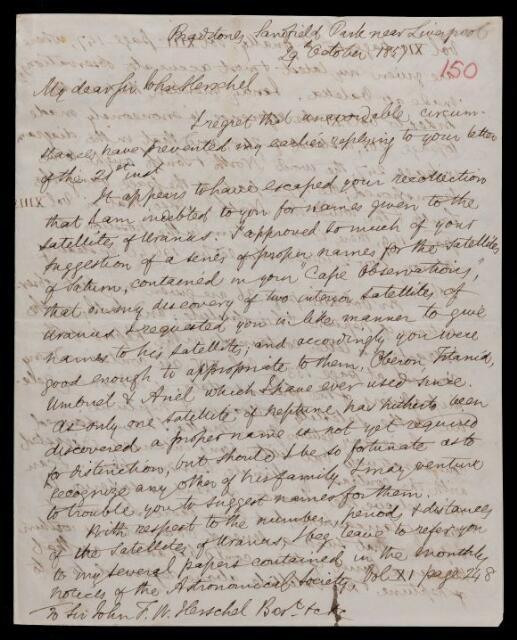 Bradstones, Sandfield Park near Liverpool
29th October 1857
150
My dear Sir John Herschel
I regret that unavoidable circum-
stances have prevented my earlier replying to your letter
of the 21st inst
It appears to have escaped your recollection
that I am indebted to you for names given to the
satellites of Uranus. I approved so much of your
suggestion of a series of proper names for the satellites
of Saturn, contained in your "Cape Observations,"
that on my discovery of two interior satellites of
Uranus I requested you in like manner to give
names to his satellites; and accordingly you were
good enough to appropriate to them, Oberon, Titania,
Umbriel & Ariel which I have ever used since.
As only one satellite of Neptune has hitherto been
discovered a proper name is not yet required
for distinction, but should I be so fortunate as to
recognize any other of his family, I may venture
to trouble you to suggest names for them.
With respect to the number, period, & distances
of the satellites of Uranus, I beg leave to refer you
to my several papers contained in the monthly
notices of the Astronomical Society, Vol XI page 248
To Sir John F. W. Herschel Bart &c &c